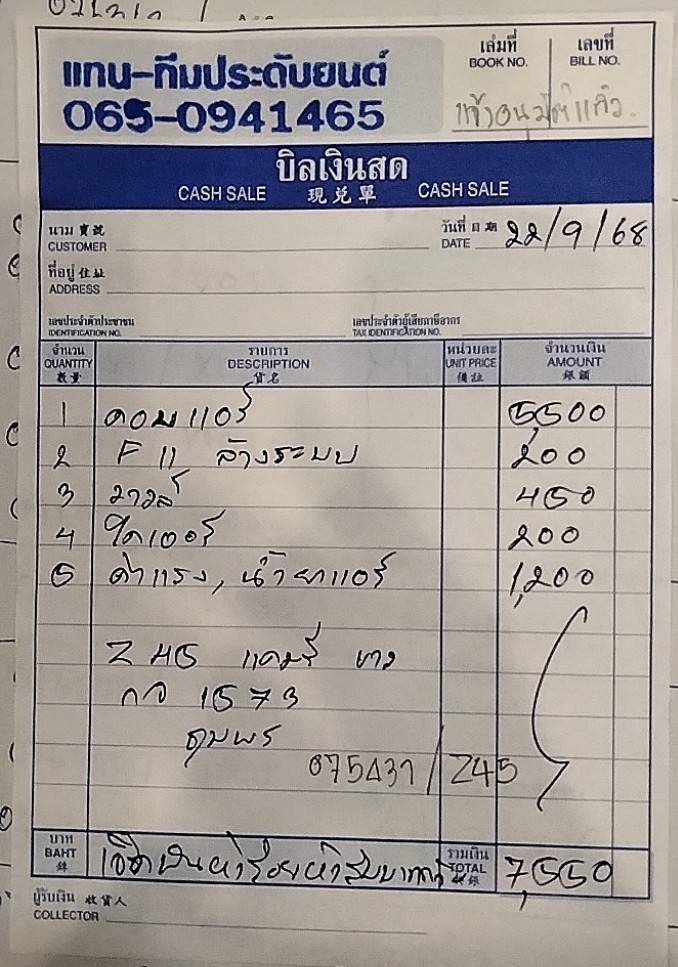 แทน-ทีมประดับยนต์
065-0941465
เล่มที่ เลขที่
BOOK NO. BILL NO.
แจ้งอนุมัติแล้ว
บิลเงินสด
CASH SALE 現兌單 CASH SALE
นาม 寶號
CUSTOMER
วันที่ 日期
DATE 22/9/68
ที่อยู่ 住址
ADDRESS
เลขประจำตัวประชาชน เลขประจำตัวผู้เสียภาษีอากร
IDENTIFICATION NO. TAX IDENTIFICATION NO.
จำนวน รายการ หน่วยละ จำนวนเงิน
QUANTITY DESCRIPTION UNIT PRICE AMOUNT
數量 貨名 價 銀額
1 คอมแอร์ 5,500
2 F 11 ล้างระบบ 200
3 วาวล์ 450
4 ไดเออร์ 200
5 ค่าแรง, น้ำยาแอร์ 1,200
Z 45 แคมรี่
กจ 1573
ชุมพร
075431/Z45
บาท รวมเงิน
BAHT เจ็ดพันห้าร้อยห้าสิบบาท TOTAL 7,550
ผู้รับเงิน 收貨人
COLLECTOR